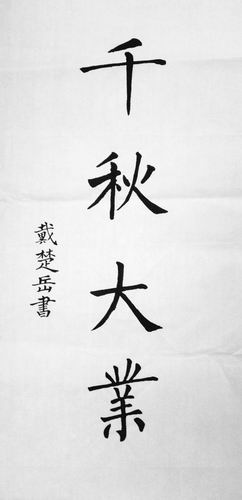 千秋大業
戴楚岳書